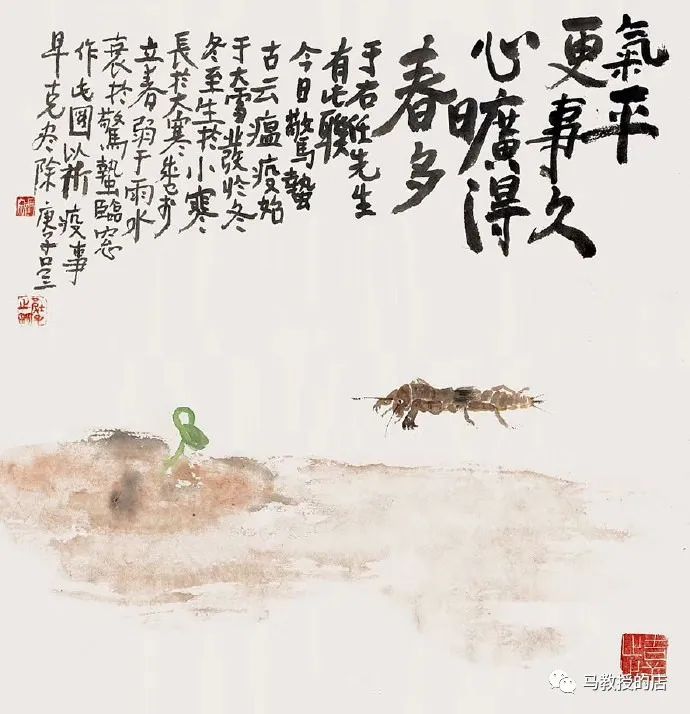 氣平
更事久
心曠得
春多
于右任先生
有此聯
今日驚蟄
古云瘟疫始
于大雪發於冬
冬至生於小寒
長於大寒盛於
立春弱于雨水
衰於驚蟄臨窓
作此圖以祈疫事
早克尽除 庚子呂三
马教授的店